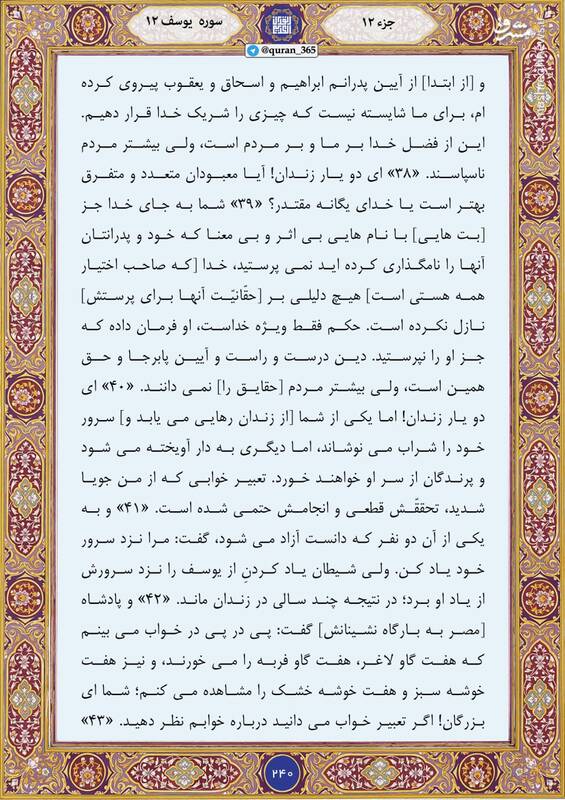 جزء ۱۲
سوره یوسف ۱۲
@quran_365
مشرق
و [از ابتدا] از آیین پدرانم ابراهیم و اسحاق و یعقوب پیروی کرده
ام، برای ما شایسته نیست که چیزی را شریک خدا قرار دهیم.
این از فضل خدا بر ما و بر مردم است، ولی بیشتر مردم
ناسپاسند. «۳۸» ای دو یار زندان! آیا معبودان متعدد و متفرق
بهتر است یا خدای یگانه مقتدر؟ «۳۹» شما به جای خدا جز
[بت هایی] با نام هایی بی اثر و بی معنا که خود و پدرانتان
آنها را نامگذاری کرده اید نمی پرستید، خدا [که صاحب اختیار
همه هستی است] هیچ دلیلی بر [حقّانیّت آنها برای پرستش]
نازل نکرده است. حکم فقط ویژه خداست، او فرمان داده که
جز او را نپرستید. دین درست و راست و آیین پابرجا و حق
همین است، ولی بیشتر مردم [حقایق را] نمی دانند. «۴۰» ای
دو یار زندان! اما یکی از شما [از زندان رهایی می یابد و] سرور
خود را شراب می نوشاند، اما دیگری به دار آویخته می شود
و پرندگان از سر او خواهند خورد. تعبیر خوابی که از من جویا
شدید، تحققّش قطعی و انجامش حتمی شده است. «۴۱» و به
یکی از آن دو نفر که دانست آزاد می شود، گفت: مرا نزد سرور
خود یاد کن. ولی شیطان یاد کردنِ از یوسف را نزد سرورش
از یاد او برد؛ در نتیجه چند سالی در زندان ماند. «۴۲» و پادشاه
[مصر به بارگاه نشینانش] گفت: پی در پی در خواب می بینم
که هفت گاو لاغر، هفت گاو فربه را می خورند، و نیز هفت
خوشه سبز و هفت خوشه خشک را مشاهده می کنم؛ شما ای
بزرگان! اگر تعبیر خواب می دانید درباره خوابم نظر دهید. «۴۳»
۲۴۰